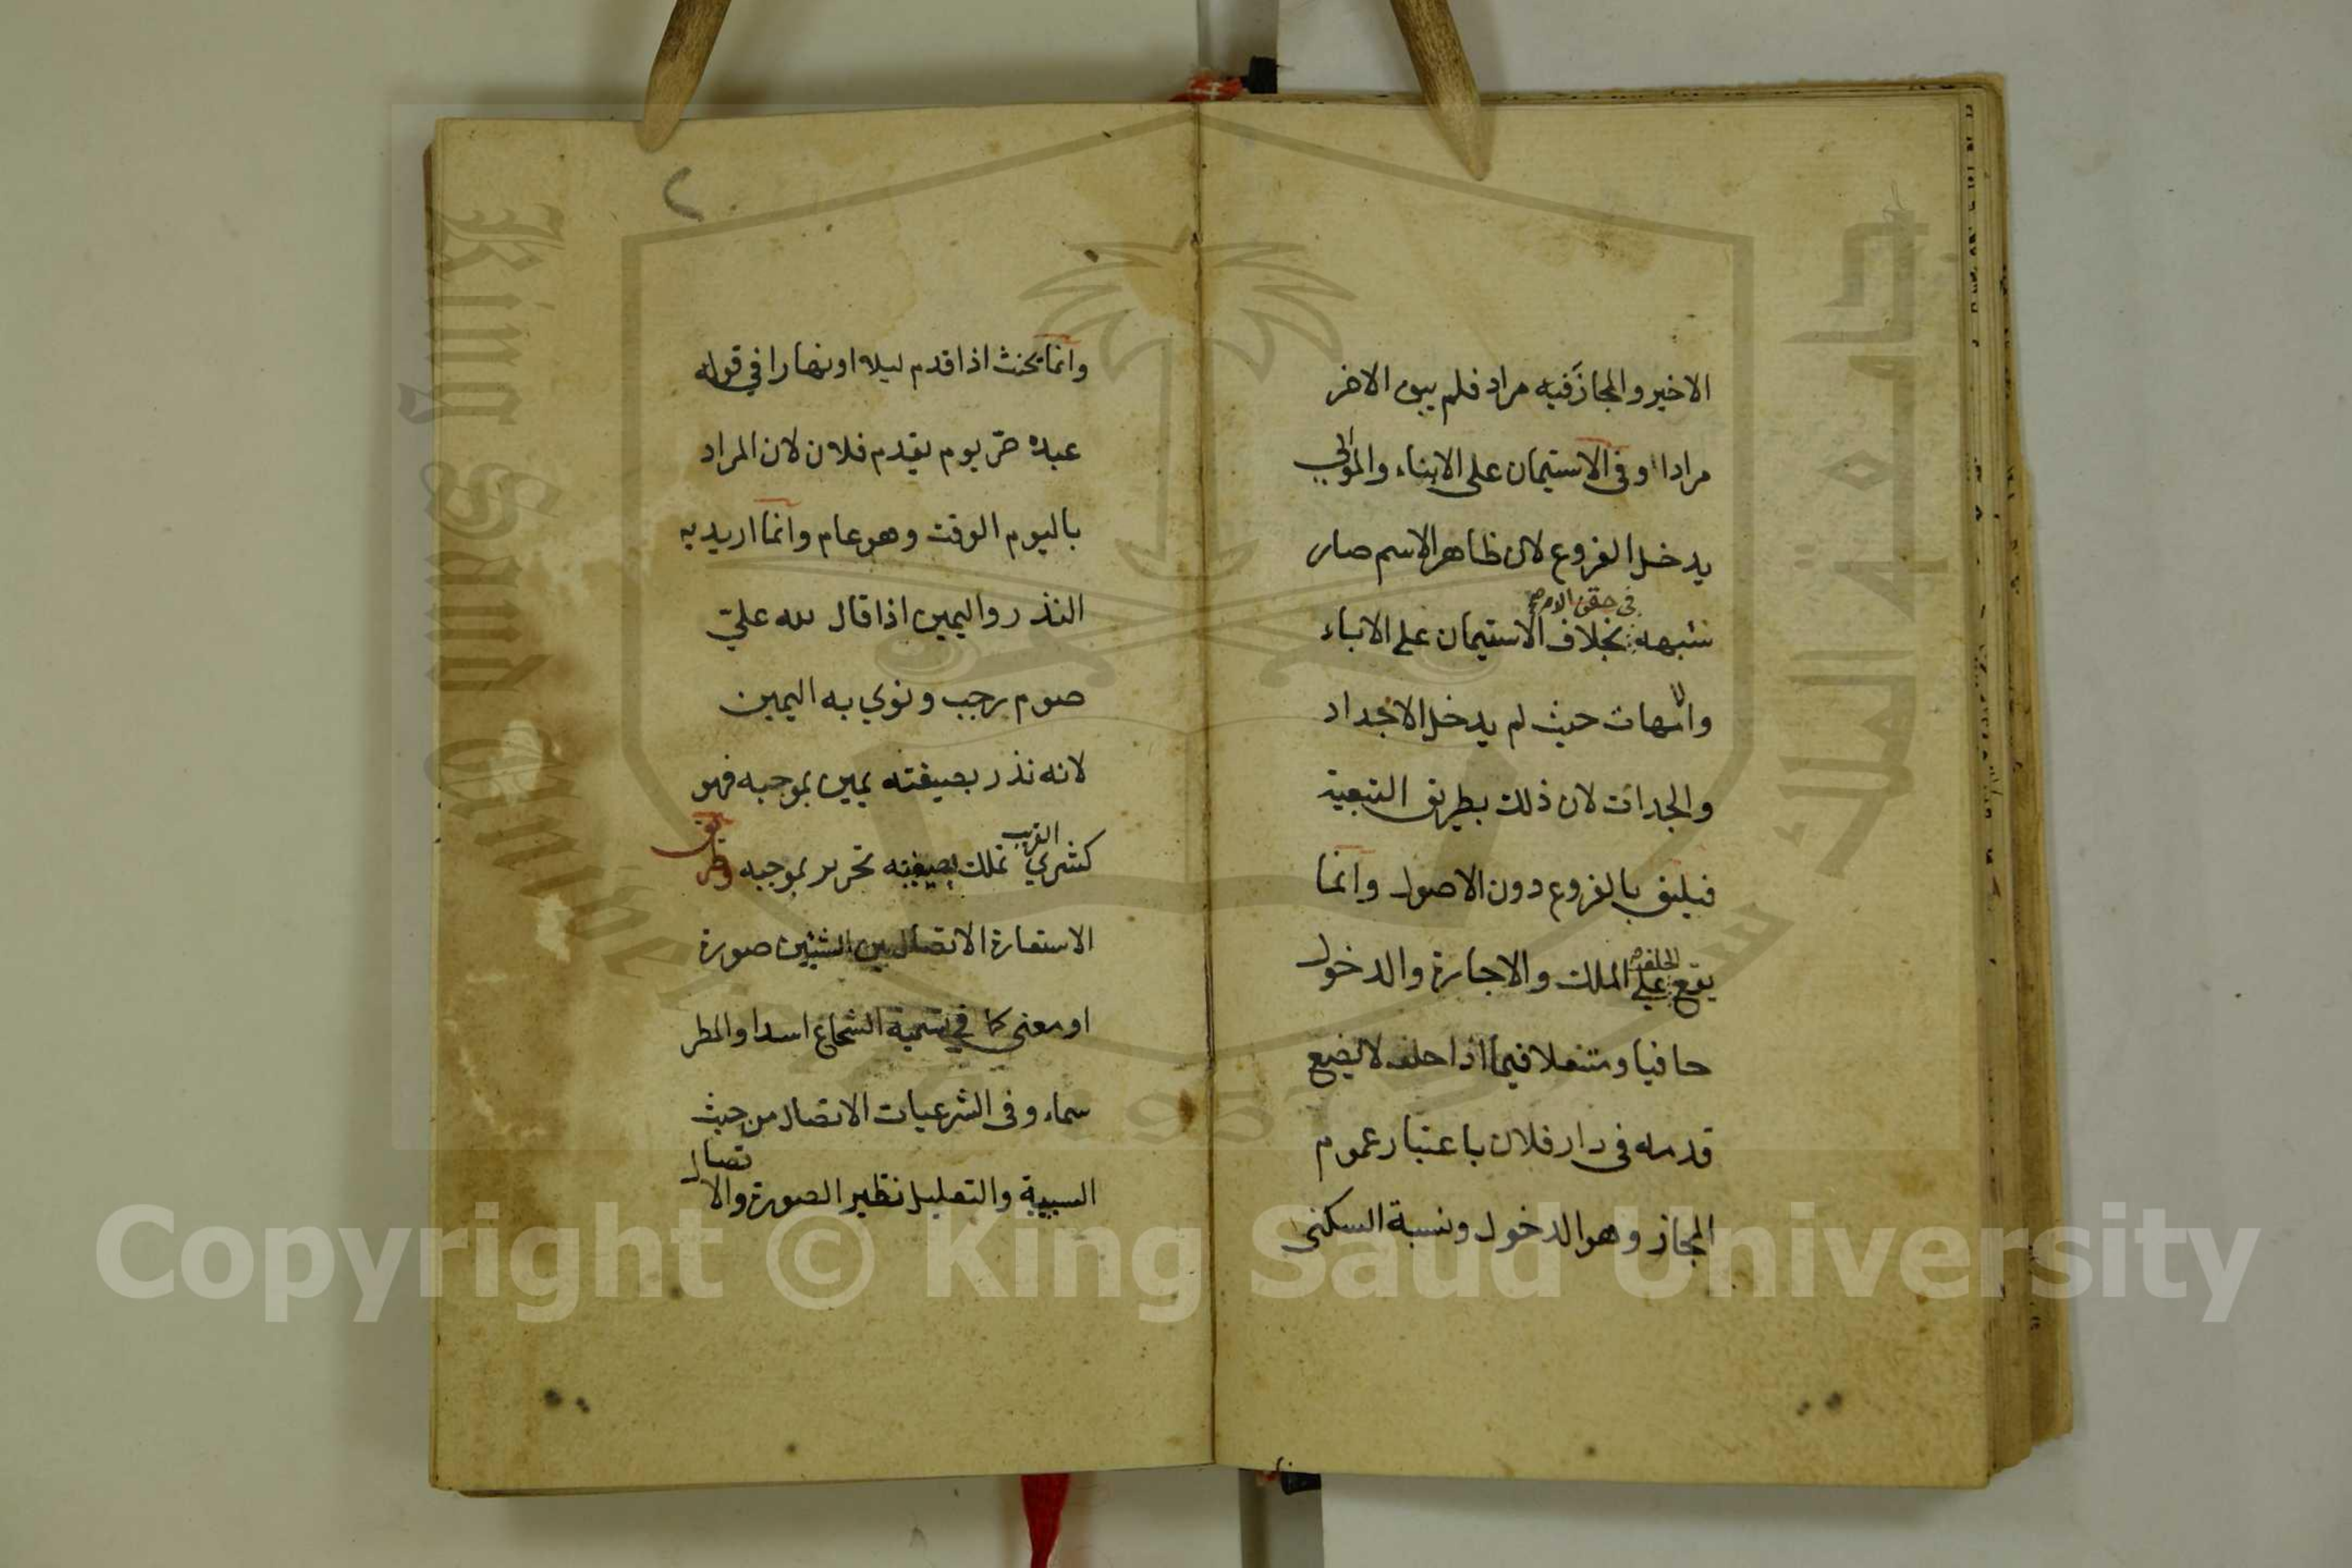 الاخير والمجاز فيه مراد فلم يبق الاخر
مرادا وفى الاستيمان على الابناء والموالي
يدخل الفروع لان ظاهر الاسم صار
شبهة فى حقن الدم بخلاف الاستيمان على الاباء
والامهات حيث لم يدخل الاجداد
والجدات لان ذلك بطريق التبعية
فيليق بالفروع دون الاصول وانما
يقع الحلف على الملك والاجارة والدخول
حافيا ومتنعلا فيما اذا حلف لا يضع
قدمه فى دار فلان باعتبار عموم
المجاز وهو الدخول ونسبة السكنى
٢
وانما يحنث اذا قدم ليلا او نهارا في قوله
عبده حرّ يوم يقدم فلان لان المراد
باليوم الوقت وهو عام وانما اريد به
النذر واليمين اذا قال لله عليّ
صوم رجب ونوي به اليمين
لانه نذر بصيغته يمين بموجبه فهو
كشري القريب تملك بصيغته تحرير بموجبه وطريق
الاستعارة الاتصال بين الشيئين صورة
او معنى كما في تسمية الشجاع اسدا والمطر
سماء وفى الشرعيات الاتصال من حيث
السببية والتعليل نظير الصورة والاتصال
King Saud University
جامعة الملك سعود
1957
Copyright © King Saud University